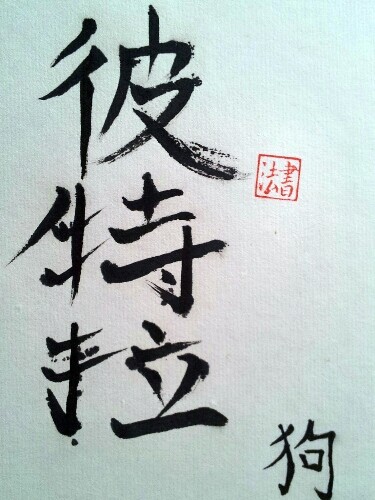 彼特拉
書法
狗